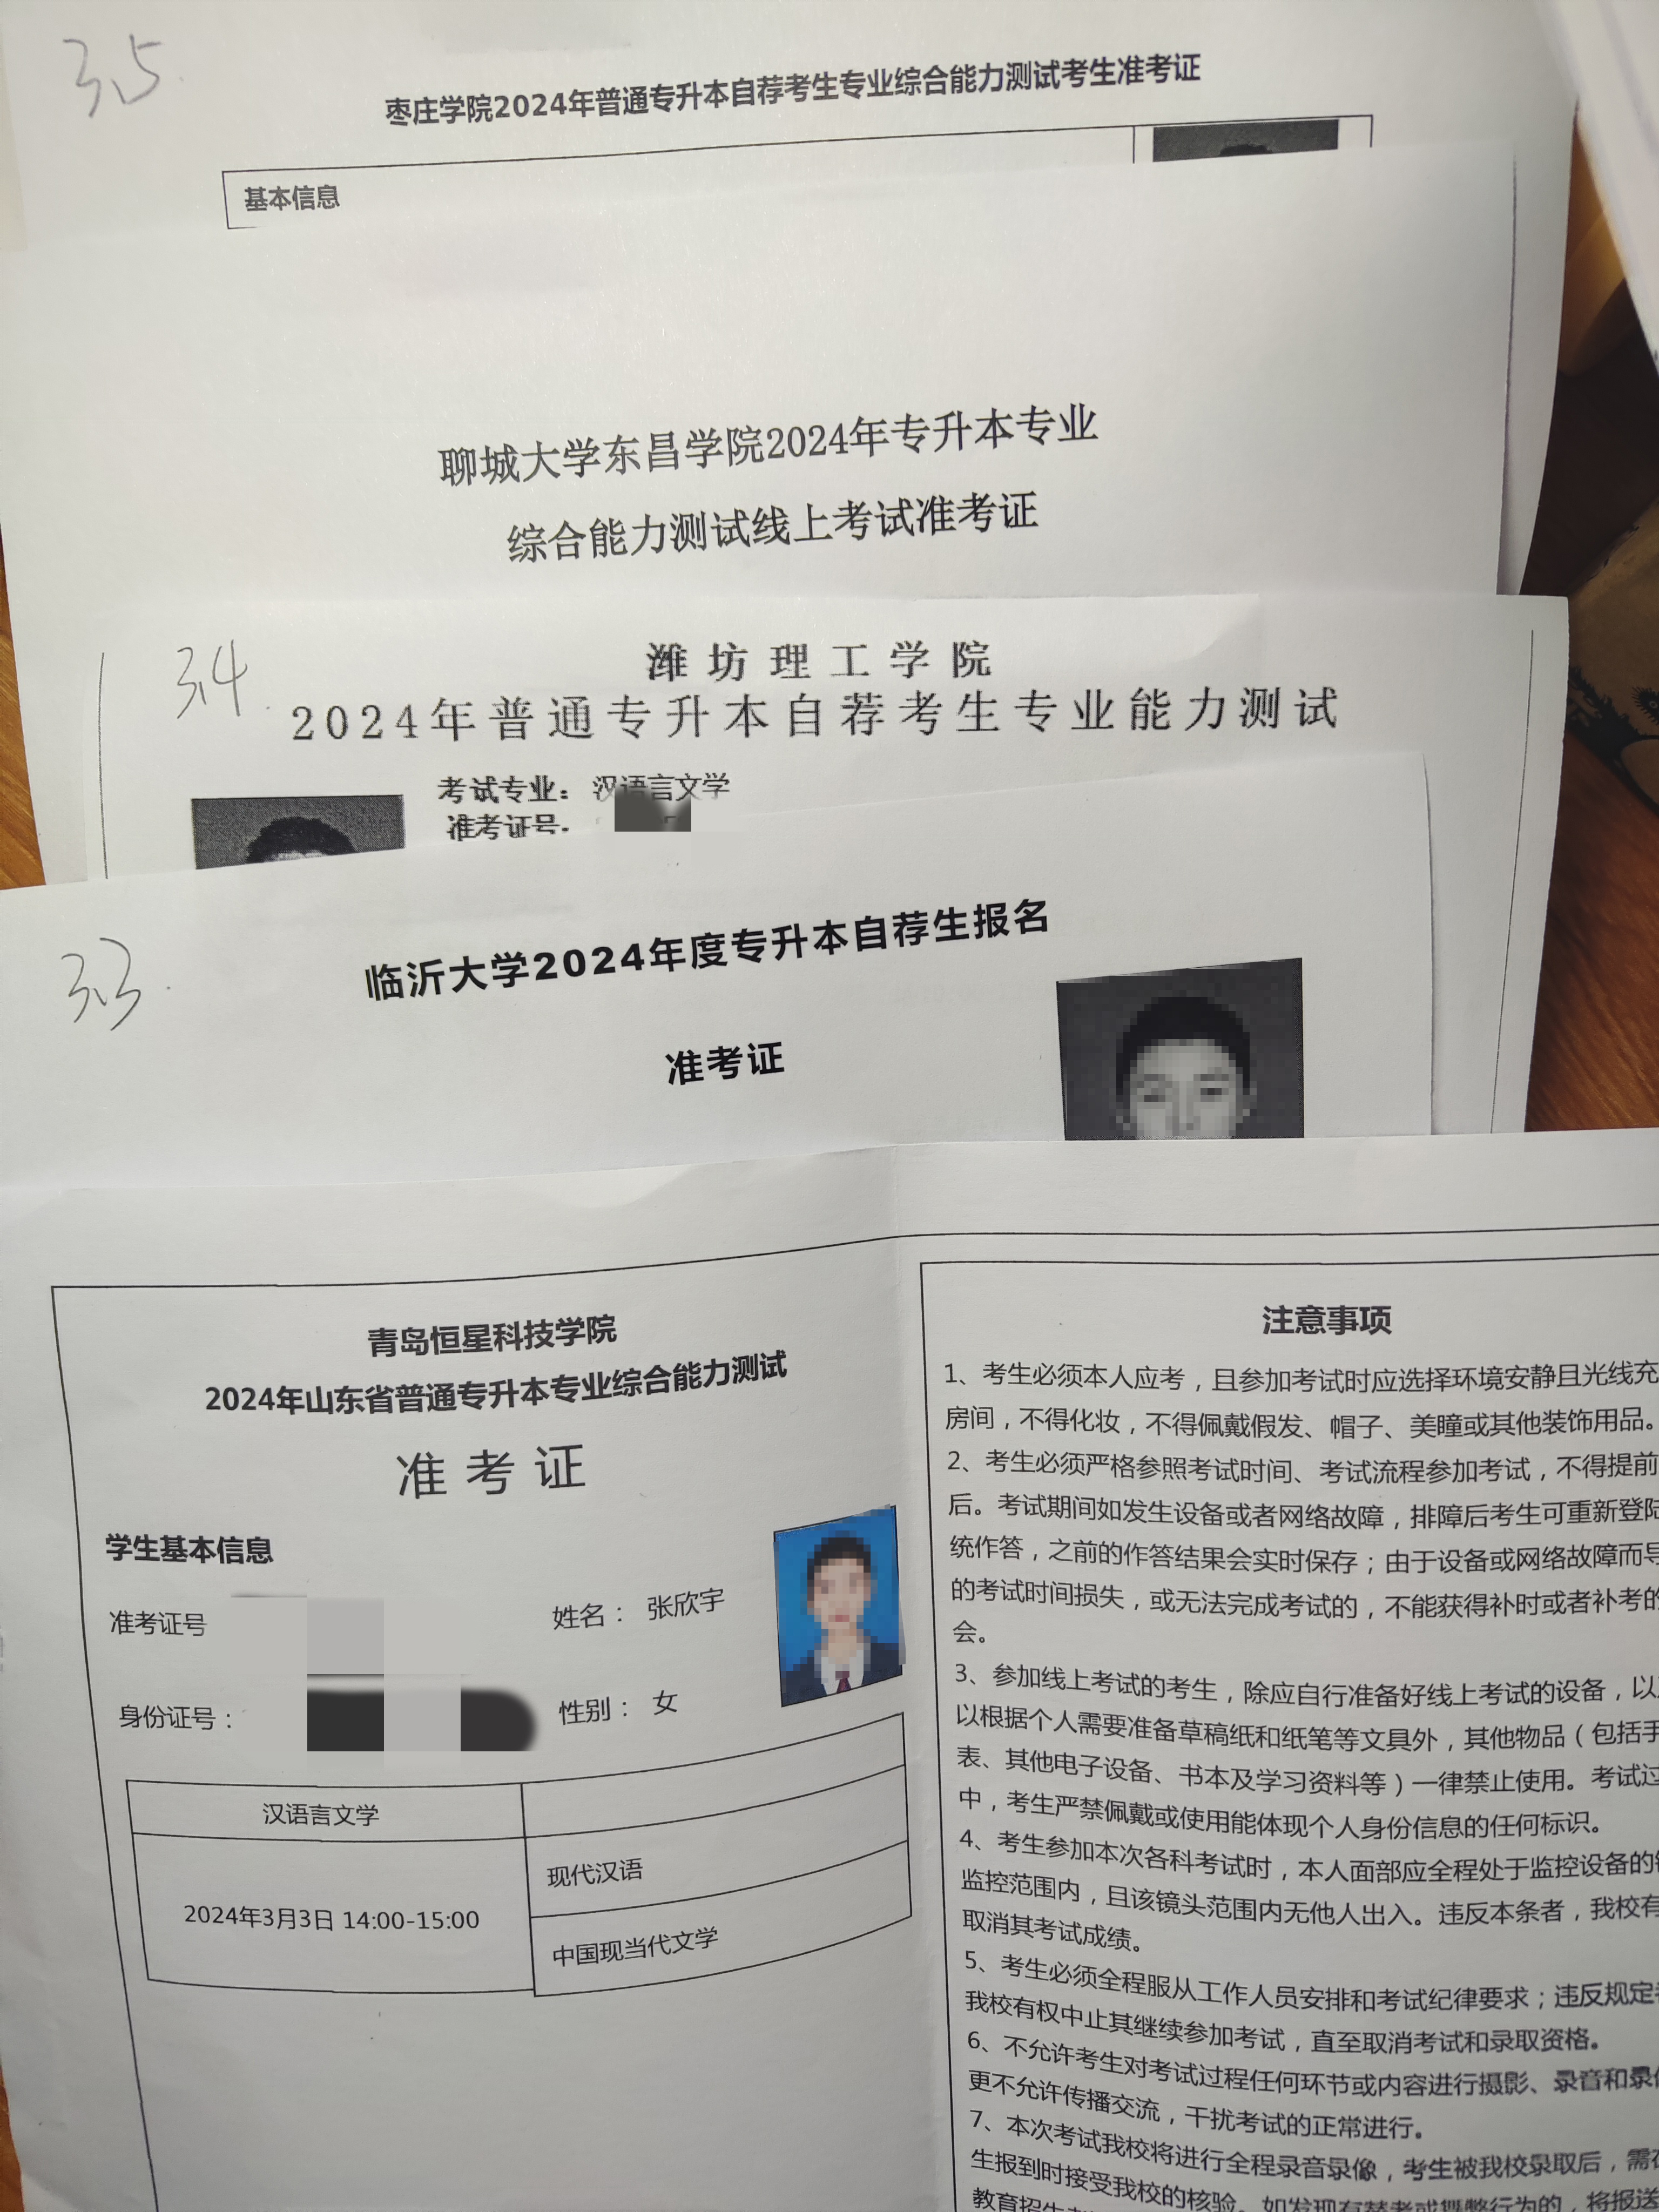 3.5
枣庄学院2024年普通专升本自荐考生专业综合能力测试考生准考证
基本信息
聊城大学东昌学院2024年专升本专业
综合能力测试线上考试准考证
3.4
潍坊理工学院
2024年普通专升本自荐考生专业能力测试
考试专业：汉语言文学
准考证号
3.3
临沂大学2024年度专升本自荐生报名
准考证
青岛恒星科技学院
2024年山东省普通专升本专业综合能力测试
准考证
学生基本信息
准考证号
姓名： 张欣宇
身份证号：
性别： 女
汉语言文学
2024年3月3日 14:00-15:00
现代汉语
中国现当代文学
注意事项
1、考生必须本人应考，且参加考试时应选择环境安静且光线充
房间，不得化妆，不得佩戴假发、帽子、美瞳或其他装饰用品。
2、考生必须严格参照考试时间、考试流程参加考试，不得提前
后。考试期间如发生设备或者网络故障，排障后考生可重新登陆
统作答，之前的作答结果会实时保存；由于设备或网络故障而导
的考试时间损失，或无法完成考试的，不能获得补时或者补考的
会。
3、参加线上考试的考生，除应自行准备好线上考试的设备，以
以根据个人需要准备草稿纸和纸笔等文具外，其他物品（包括手
表、其他电子设备、书本及学习资料等）一律禁止使用。考试过
中，考生严禁佩戴或使用能体现个人身份信息的任何标识。
4、考生参加本次各科考试时，本人面部应全程处于监控设备的
监控范围内，且该镜头范围内无他人出入。违反本条者，我校有
取消其考试成绩。
5、考生必须全程服从工作人员安排和考试纪律要求；违反规定
我校有权中止其继续参加考试，直至取消考试和录取资格。
6、不允许考生对考试过程任何环节或内容进行摄影、录音和录
更不允许传播交流，干扰考试的正常进行。
7、本次考试我校将进行全程录音录像，考生被我校录取后，需
生报到时接受我校的核验。如发现有替考或舞弊行为的，将报送
教育招生